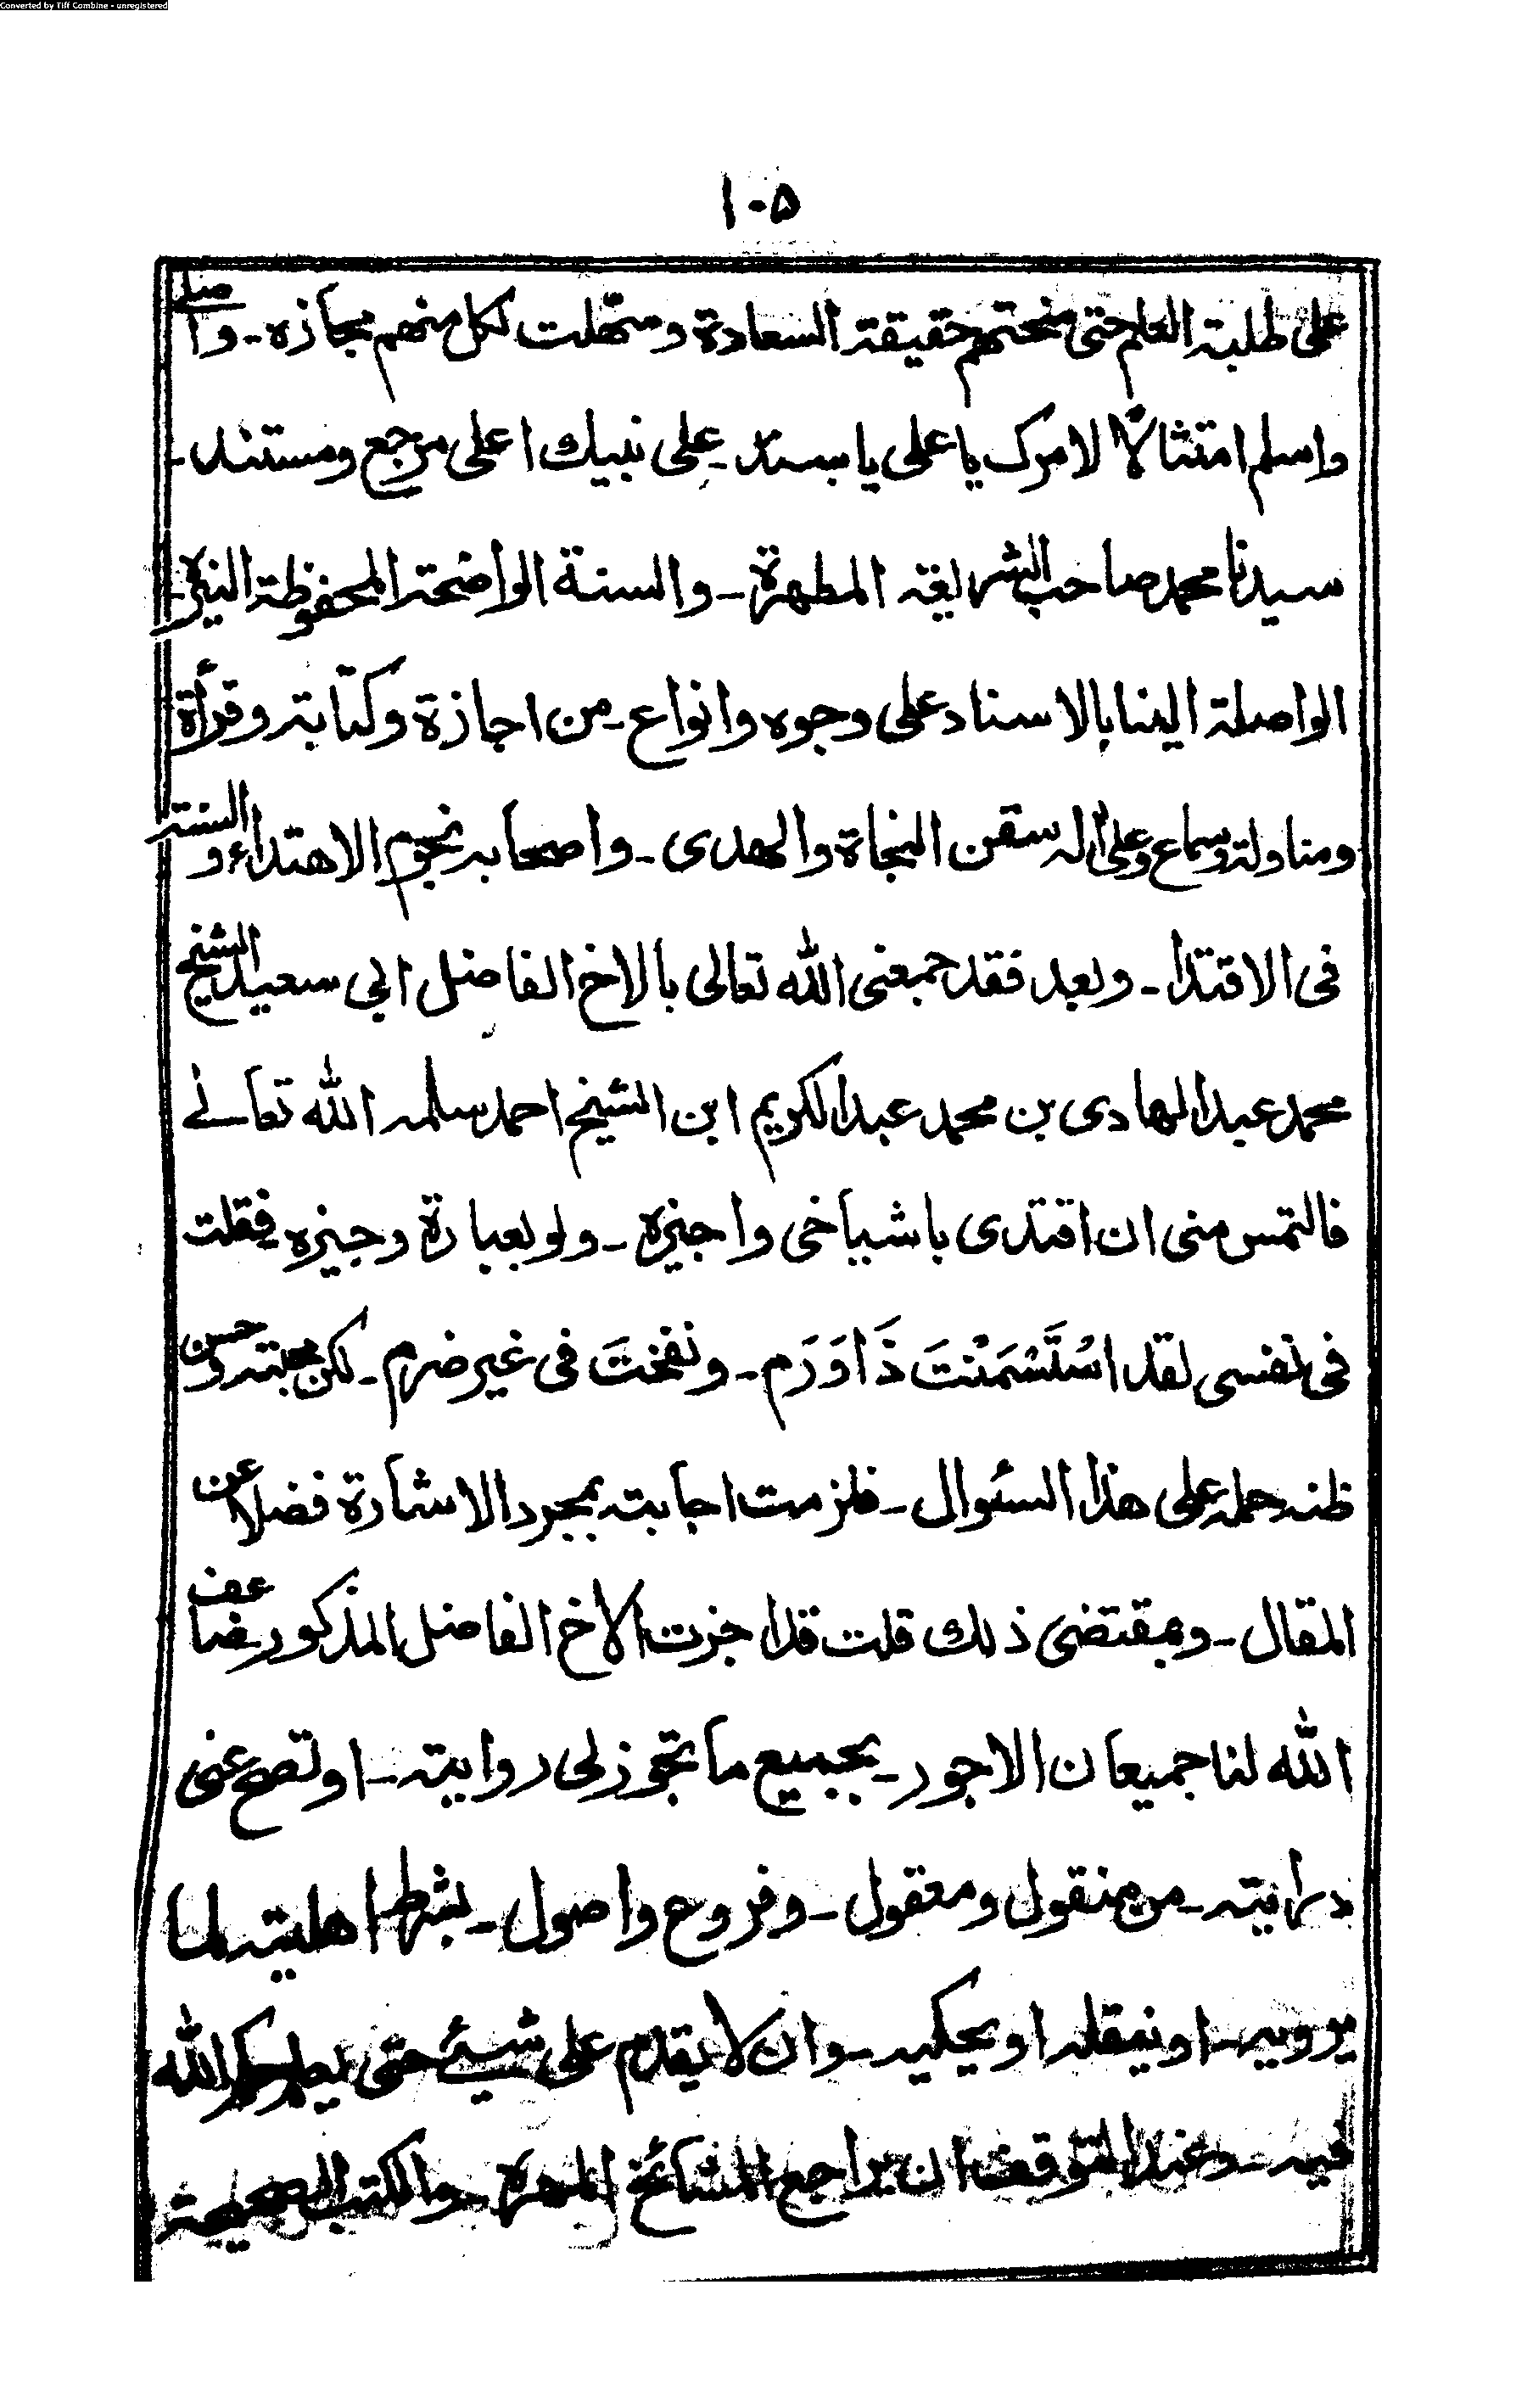 Converted by Tiff Combine - unregistered
١٠٥
على طلبة العلم حتى منحتهم حقيقة السعادة وسهلت لكل منهم مجازه ـ واصلى
واسلم امتثالا لامرك يا على يا سند ـ على نبيك اعلى مرجع ومستند ـ
سيدنا محمد صاحب الشريعة المطهرة ـ والسنة الواضحة المحفوظة النيرة ـ
الواصلة الينا بالاسناد على وجوه وانواع ـ من اجازة وكتابة وقرأة
ومناولة وسماع وعلى اله سفن النجاة والهدى ـ واصحابه نجوم الاهتداء والسنة
فى الاقتدا ـ وبعد فقد جمعنى الله تعالى بالاخ الفاضل ابي سعيد الشيخ
محمد عبد الهادى بن محمد عبد الكريم ابن الشيخ احمد سلمه الله تعالے
فالتمس منى ان اقتدى باشياخى واجيزه ـ ولو بعبارة وجيزه فقلت
فى نفسى لقد اسْتَسْمَنْتَ ذَا وَرَم ـ ونفختَ فى غير ضرم ـ لكن محبته وحسن
ظنه حمله على هذا السئوال ـ فلزمت اجابته بمجرد الاشارة فضلا عن
المقال ـ وبمقتضى ذلك قلت قد اجزت الاخ الفاضل المذكور ضاعف
الله لنا جميعا ن الاجور ـ بجميع ما تجوز لى روايته ـ او تصح عنى
درايته ـ من منقول ومعقول ـ وفروع واصول ـ بشرط اهليته لما
يرويه ـ او ينقله او يحكيه ـ وان لا يقدم على شيئ حتى يعلم حكم الله
فيه ـ وعند التوقف ان يراجع المشائخ المهرة ـ والكتب الصحيحة